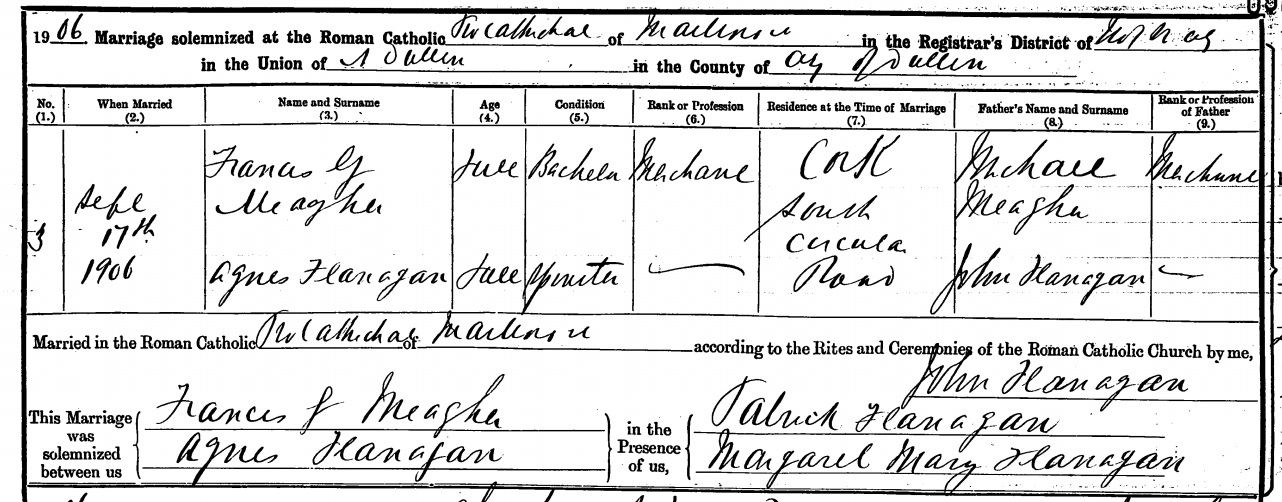 1906. Marriage solemnized at the Roman Catholic Pro Cathedral of Marlboro St in the Registrar's District of No
in the Union of N Dublin in the County of City of Dublin
No. (1.) When Married (2.) Name and Surname (3.) Age (4.) Condition (5.) Rank or Profession (6.) Residence at the Time of Marriage (7.) Father's Name and Surname (8.) Rank or Profession of Father (9.)
3 Sept 17th 1906
Francis J Meagher Full Bachelor Mechanic Cork Michael Meagher Mechanic
Agnes Flanagan Full Spinster — South Circular Road John Flanagan —
Married in the Roman Catholic Pro Cathedral of Marlboro St according to the Rites and Ceremonies of the Roman Catholic Church by me,
John Flanagan
This Marriage was solemnized between us
Francis J Meagher
Agnes Flanagan
in the Presence of us,
Patrick Flanagan
Margaret Mary Flanagan